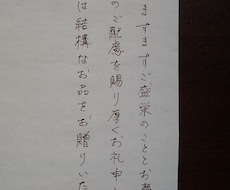 ますますご盛栄のこととお
のご配慮を賜り厚くお礼申し
は結構なお品をお贈りいた